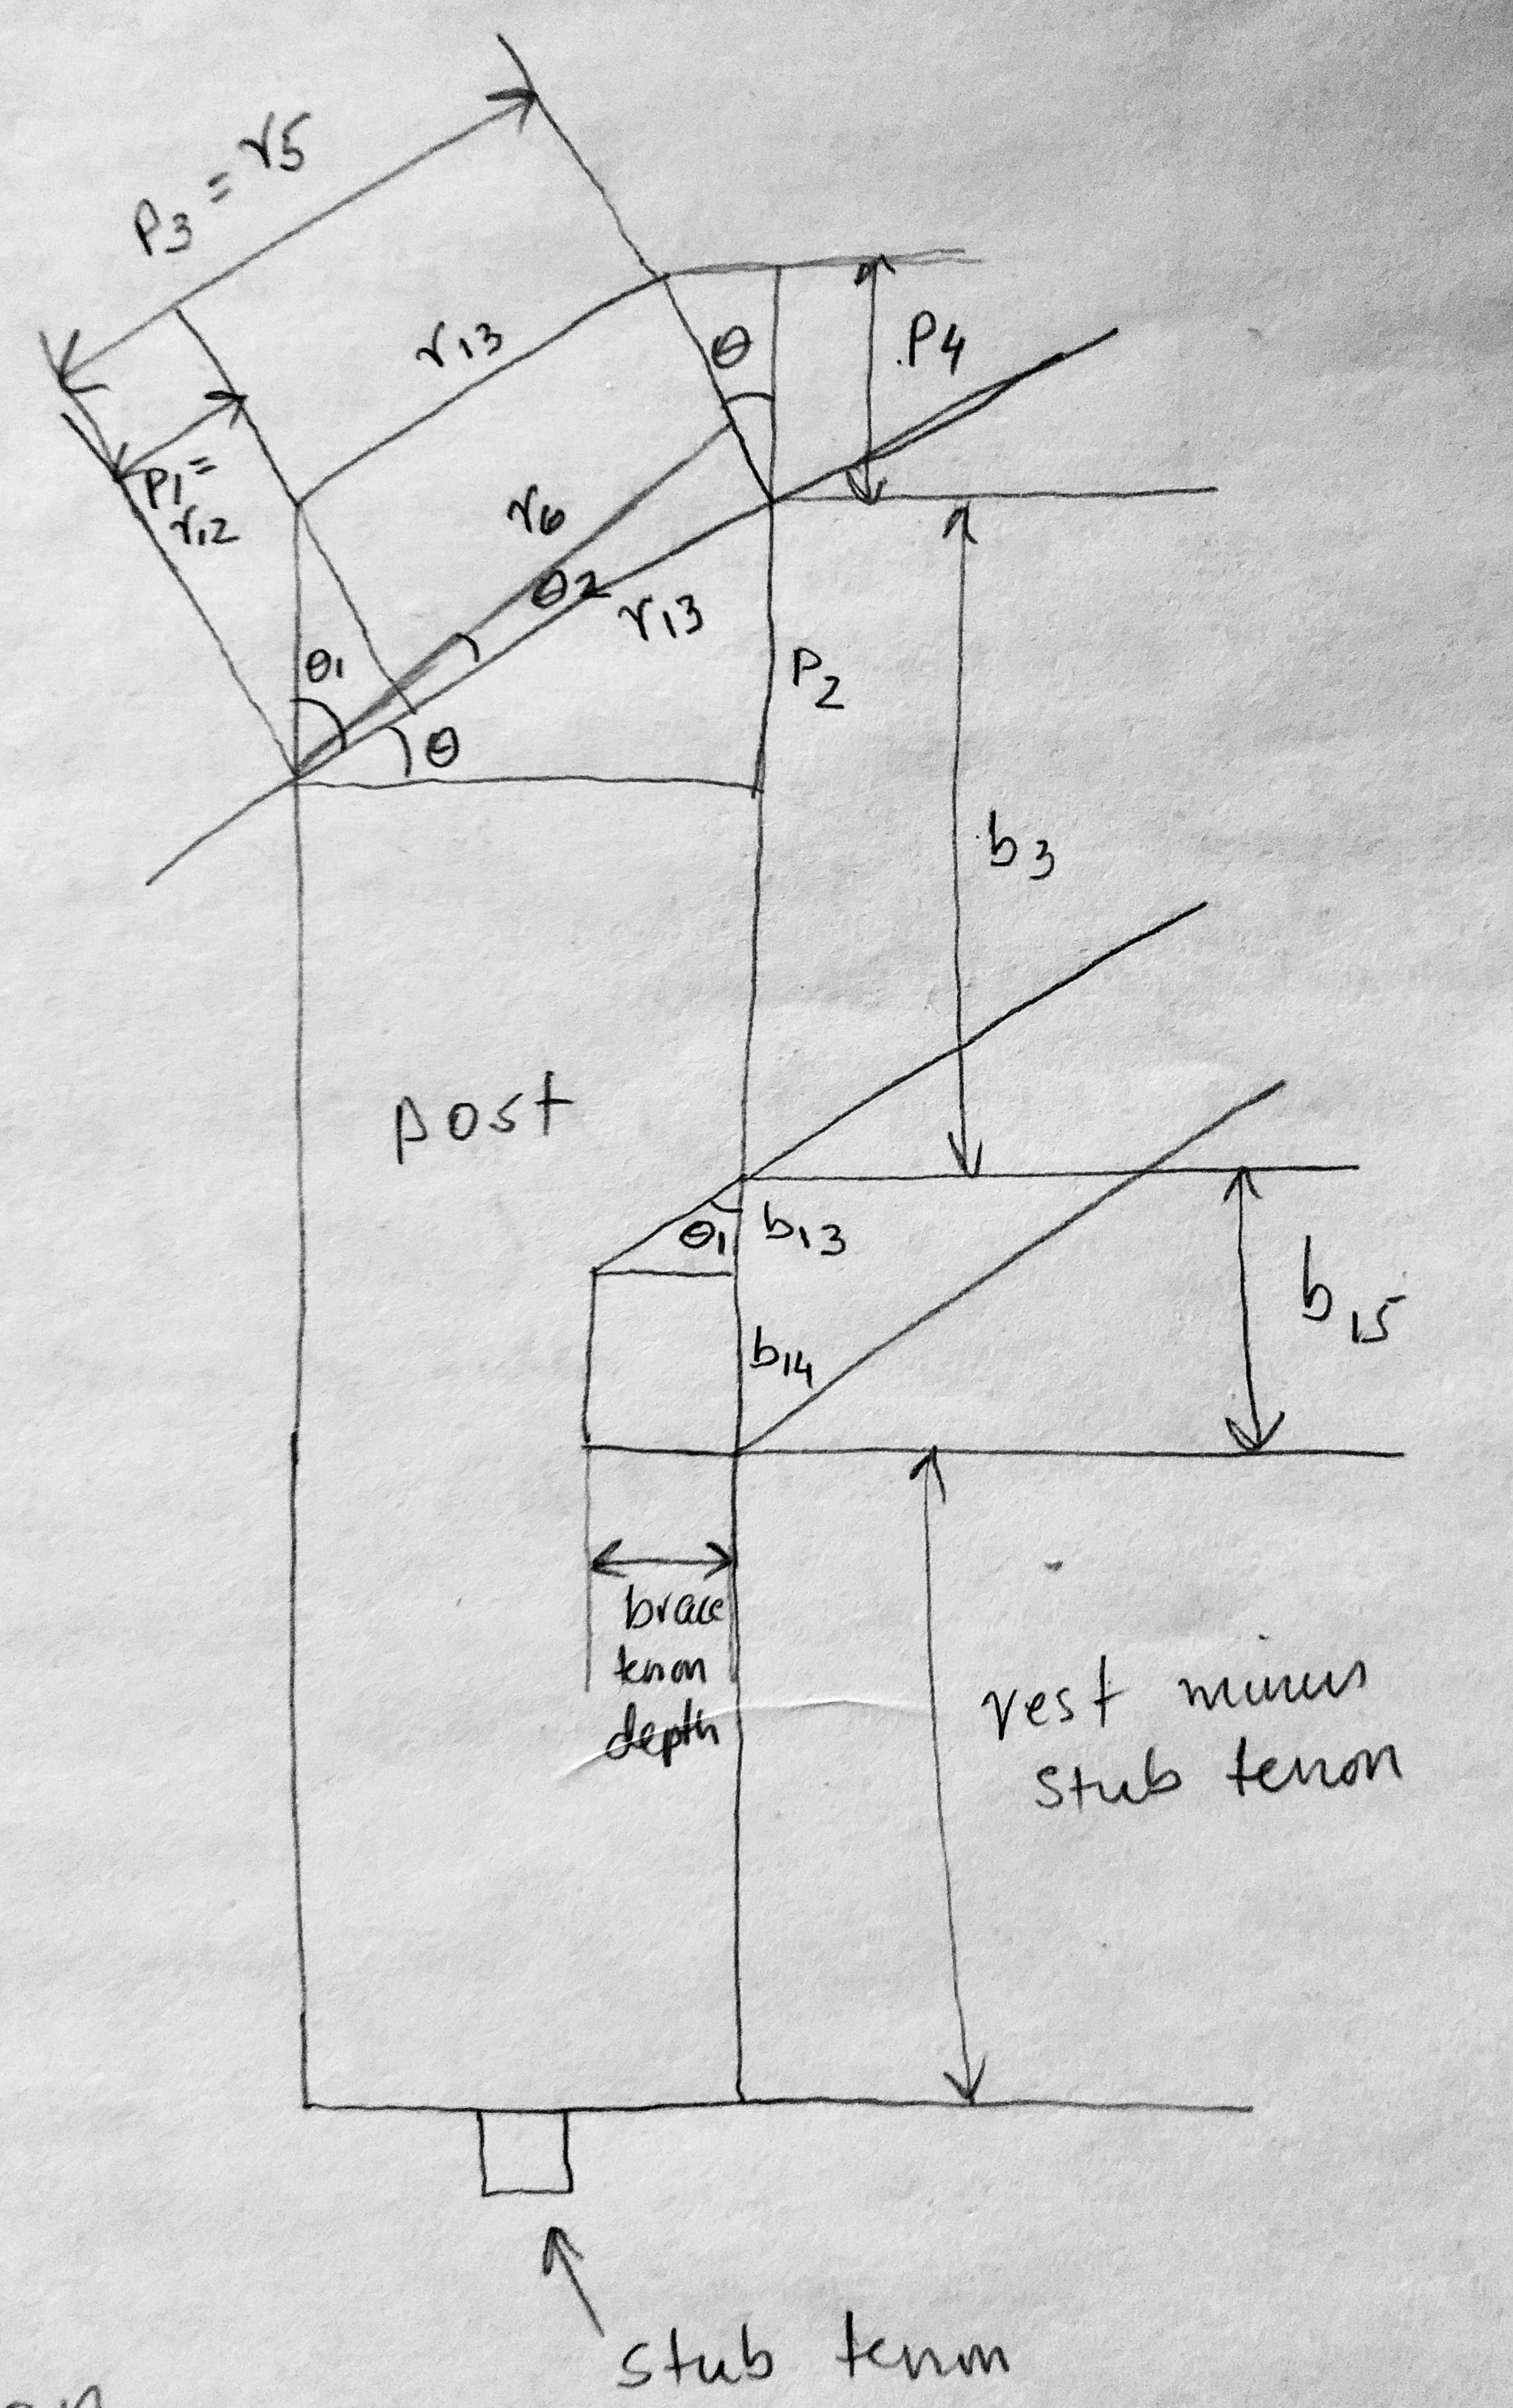 P3 = r5
r13
θ
P4
P1 =
r12
r6
θ2
r13
θ1
θ
P2
b3
post
θ1
b13
b14
b15
brace
tenon
depth
rest minus
stub tenon
stub tenon